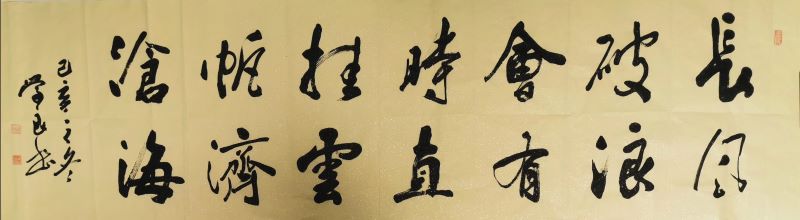 長風
破浪
會有
時直
挂雲
帆濟
滄海
己亥之冬
学良书